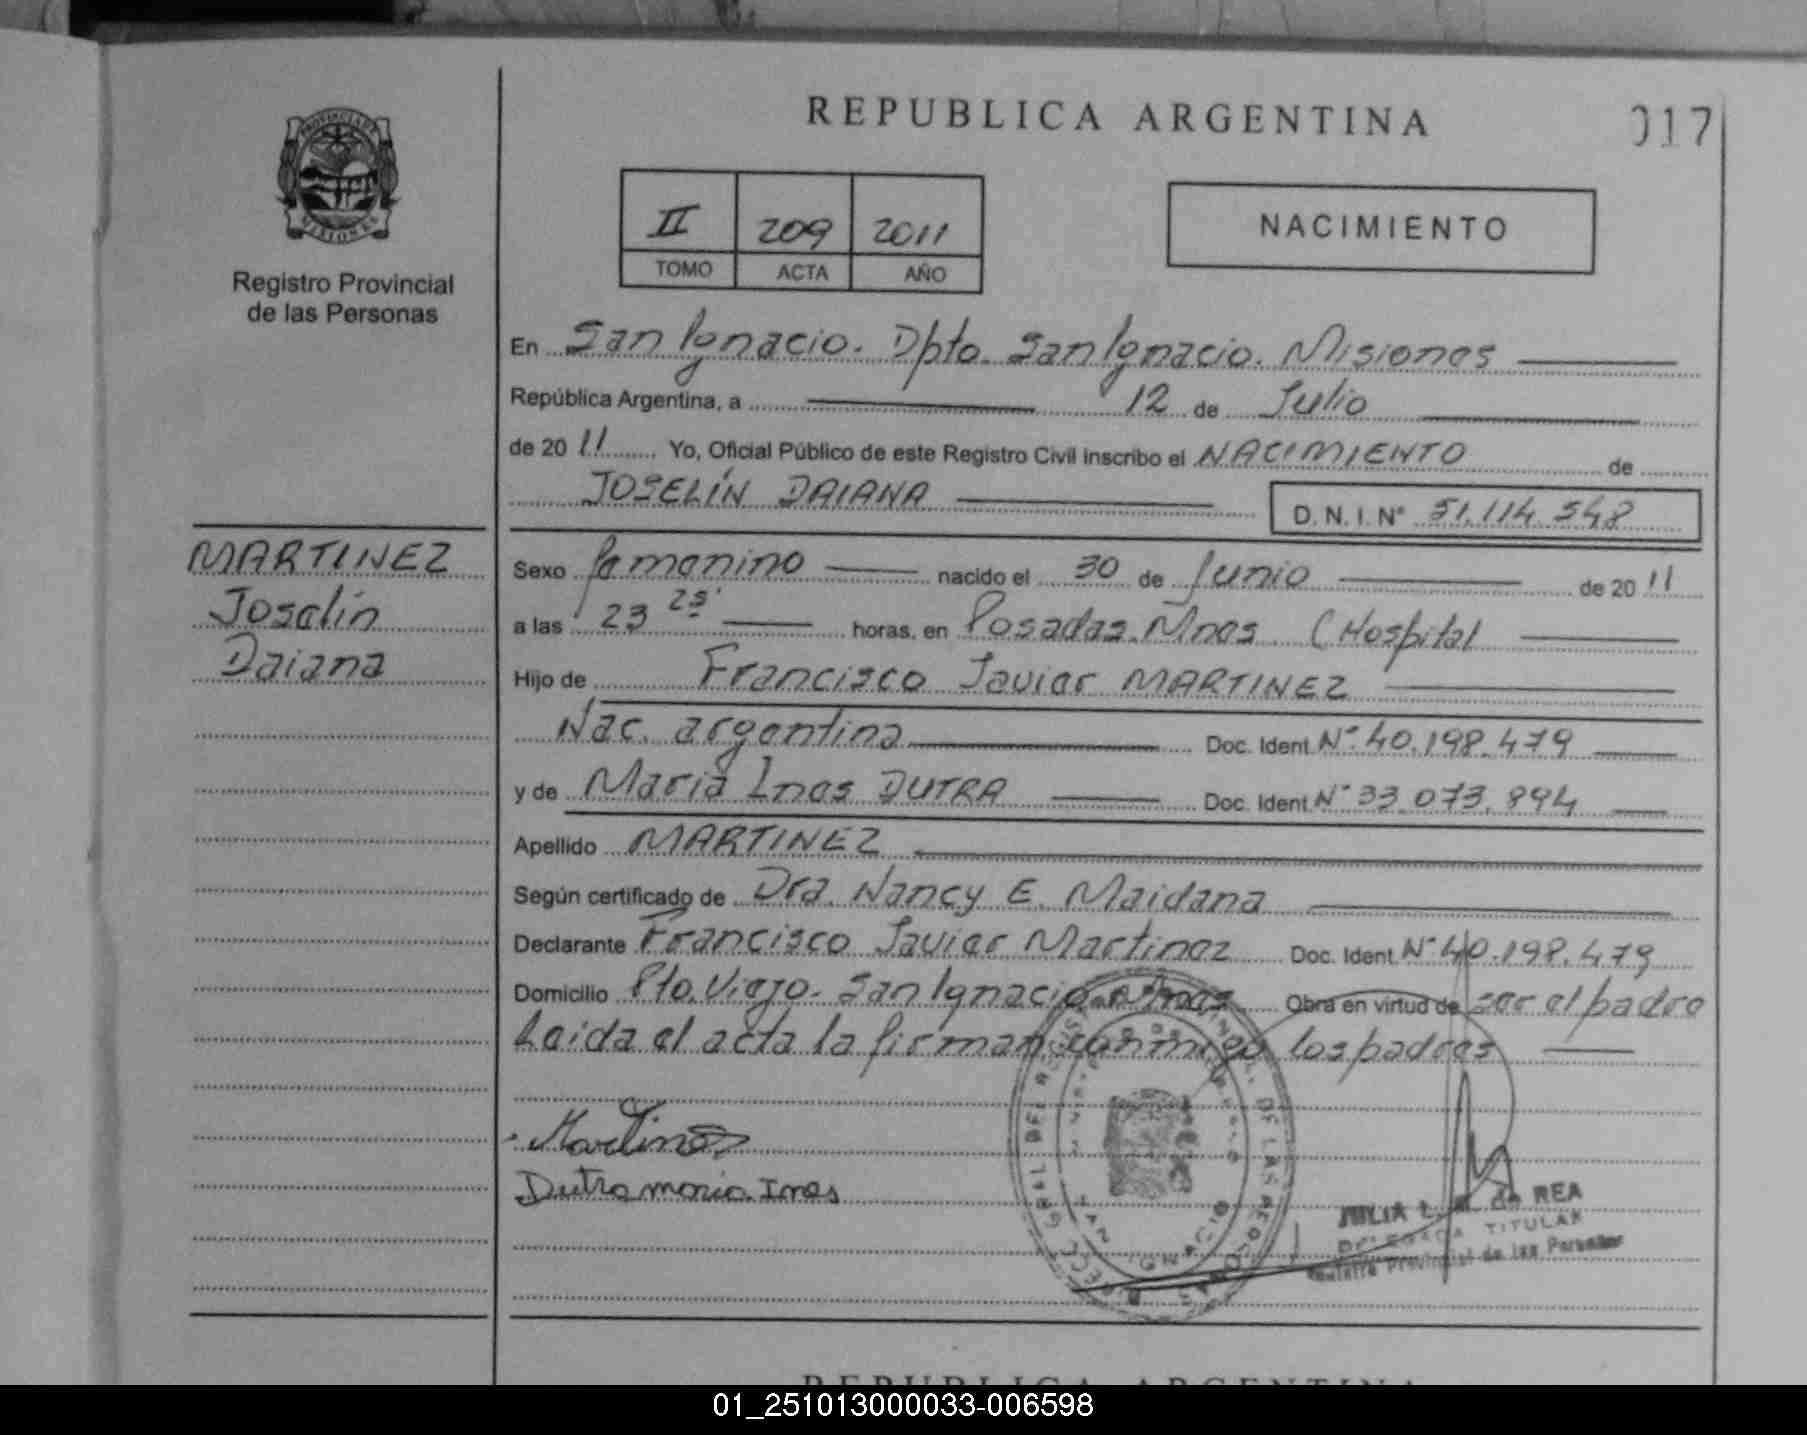 REPUBLICA ARGENTINA
017
PROVINCIA DE
MISIONES
Registro Provincial
de las Personas
II 209 2011
TOMO ACTA AÑO
NACIMIENTO
En San Ignacio. Dpto. San Ignacio. Misiones
República Argentina, a 12 de Julio
de 2011 Yo, Oficial Público de este Registro Civil inscribo el NACIMIENTO de
JOSELÍN DAIANA D. N. I. Nº 51.114.548
MARTINEZ
Joselín
Daiana
Sexo femenino nacido el 30 de Junio de 2011
a las 23 25' horas, en Posadas. Mnes (Hospital
Hijo de Francisco Javier MARTINEZ
Nac. argentina Doc. Ident. Nº 40.198.479
y de Maria Ines DUTRA Doc. Ident. Nº 33.073.894
Apellido MARTINEZ
Según certificado de Dra. Nancy E. Maidana
Declarante Francisco Javier Martinez Doc. Ident. Nº 40.198.479
Domicilio Pto. Viejo. San Ignacio. Mnes Obra en virtud de ser el padre
Leida el acta la firman conmigo los padres
Martinez
Dutra maria Ines
JULIA L. de REA
DELEGADA TITULAR
Registro Provincial de las Personas
SAN IGNACIO
REPUBLICA ARGENTINA
01_251013000033-006598